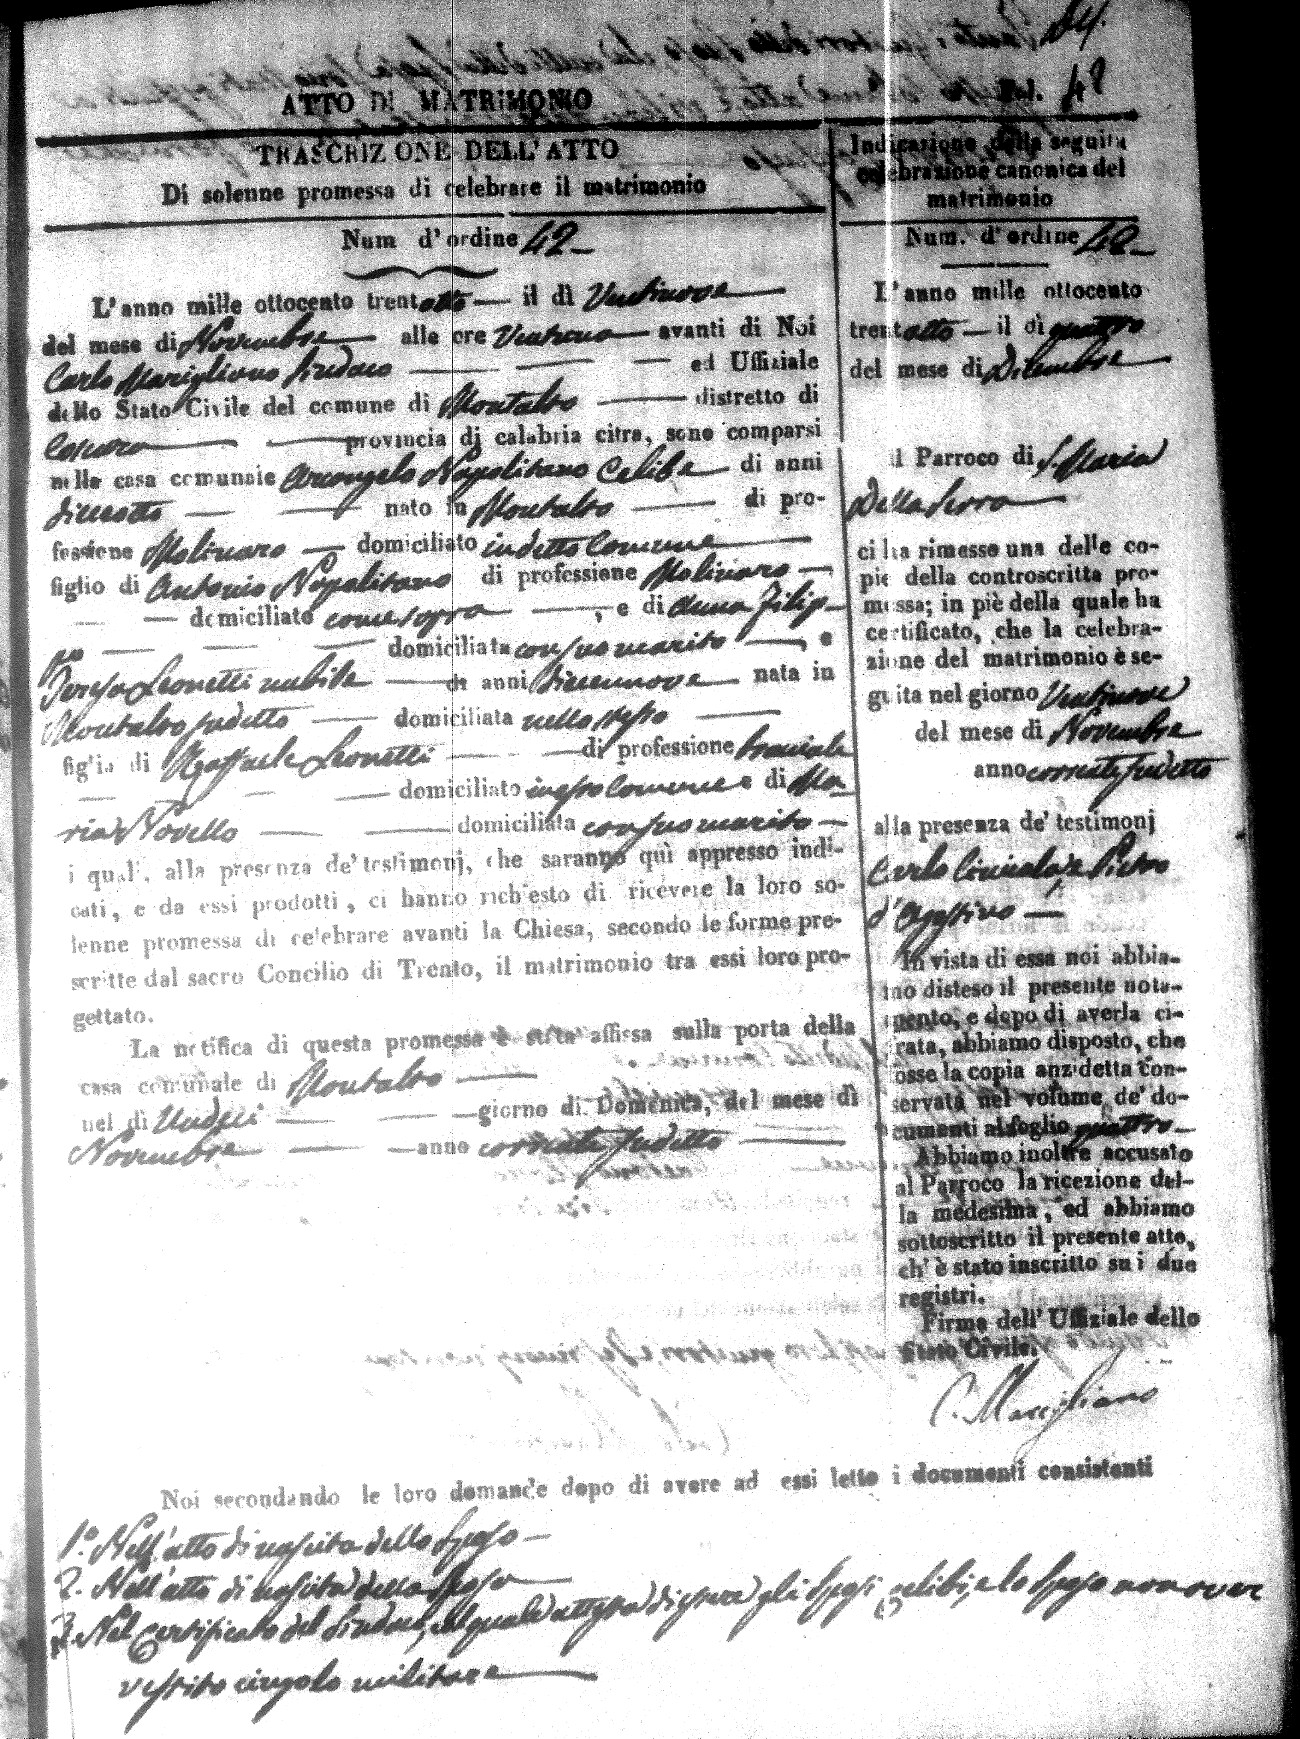 Fol. 48
ATTO DI MATRIMONIO
TRASCRIZIONE DELL'ATTO
Di solenne promessa di celebrare il matrimonio
Num d'ordine 42
L'anno mille ottocento trentotto il dì Ventinove
del mese di Novembre alle ore Ventuno avanti di Noi
Carlo Marigliano Sindaco ed Uffiziale
dello Stato Civile del comune di Montalto distretto di
Cosenza provincia di calabria citra, sono comparsi
nella casa comunale Arcangelo Napolitano Celibe di anni
diciotto nato in Montalto di pro-
fessione Molinaro domiciliato in detto Comune
figlio di Antonio Napolitano di professione Molinaro
domiciliato come sopra, e di Anna Filip-
po domiciliata con suo marito, e
Teresa Leonetti nubile di anni diecinnove nata in
Montalto sudetto domiciliata nello stesso
figlia di Raffaele Leonetti di professione bracciale
domiciliato in esso Comune e di Ma-
ria Novello domiciliata con suo marito
i quali, alla presenza de' testimonj, che saranno quì appresso indi-
cati, e da essi prodotti, ci hanno richiesto di ricevere la loro so-
lenne promessa di celebrare avanti la Chiesa, secondo le forme pre-
scritte dal sacro Concilio di Trento, il matrimonio tra essi loro pro-
gettato.
La notifica di questa promessa è stata affissa sulla porta della
casa comunale di Montalto
nel dì Undeci giorno di Domenica, del mese di
Novembre anno corrente sudetto
Indicazione della seguita
celebrazione canonica del
matrimonio
Num. d'ordine 42
L'anno mille ottocento
trentotto il dì quattro
del mese di Dicembre
il Parroco di S. Maria
Della Serra
ci ha rimesso una delle co-
pie della controscritta pro-
messa; in piè della quale ha
certificato, che la celebra-
zione del matrimonio è se-
guita nel giorno Ventinove
del mese di Novembre
anno corrente sudetto
alla presenza de' testimonj
Carlo e Pietro
d'Agostino
In vista di essa noi abbia-
mo disteso il presente nota-
mento, e dopo di averla ci-
frata, abbiamo disposto, che
fosse la copia anzidetta con-
servata nel volume de' do-
cumenti al foglio quattro
Abbiamo inoltre accusato
al Parroco la ricezione del-
la medesima, ed abbiamo
sottoscritto il presente atto,
ch' è stato inscritto su i due
registri.
Firma dell' Uffiziale dello
Stato Civile.
C. Marigliano
Noi secondando le loro domande dopo di avere ad essi letto i documenti consistenti
1.º Nell'atto di nascita dello Sposo
2. Nell'atto di nascita della Sposa
3. Nel Certificato del Sindaco, il quale attesta di essere gli Sposi celibi, e lo Sposo non aver
vestito cingolo militare